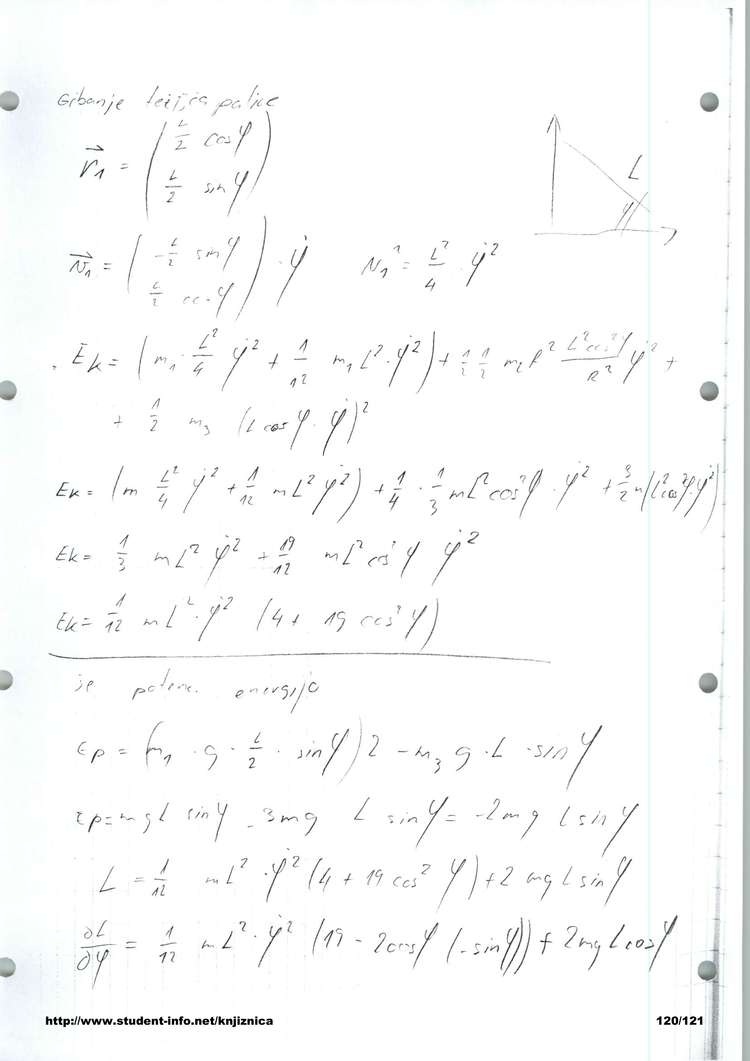 Gibanje težišča palice
r⃗₁ = ( L/2 cos φ
L/2 sin φ )
L
φ
v⃗₁ = ( -L/2 sin φ
L/2 cos φ ) · φ̇ v₁² = L²/4 φ̇²
Ek = ( m₁ · L²/4 φ̇² + 1/12 m₁ L² · φ̇² ) + 1/2 1/2 m₂ R² L² cos² φ / R² φ̇² +
+ 1/2 m₃ (L cos φ · φ̇)²
Ek = ( m L²/4 φ̇² + 1/12 m L² φ̇² ) + 1/4 · 1/3 m L² cos² φ · φ̇² + 3/2 m (L² cos² φ · φ̇²)
Ek = 1/3 m L² φ̇² + 19/12 m L² cos² φ φ̇²
Ek = 1/12 m L² · φ̇² (4 + 19 cos² φ)
še poten. energija
Ep = ( m₁ · g · L/2 · sin φ ) 2 - m₃ g · L · sin φ
Ep = m g L sin φ - 3 m g L sin φ = -2 m g L sin φ
L = 1/12 m L² · φ̇² (4 + 19 cos² φ) + 2 m g L sin φ
∂L/∂φ = 1/12 m L² · φ̇² (19 - 2 cos φ (-sin φ)) + 2 m g L cos φ
http://www.student-info.net/knjiznica 120/121